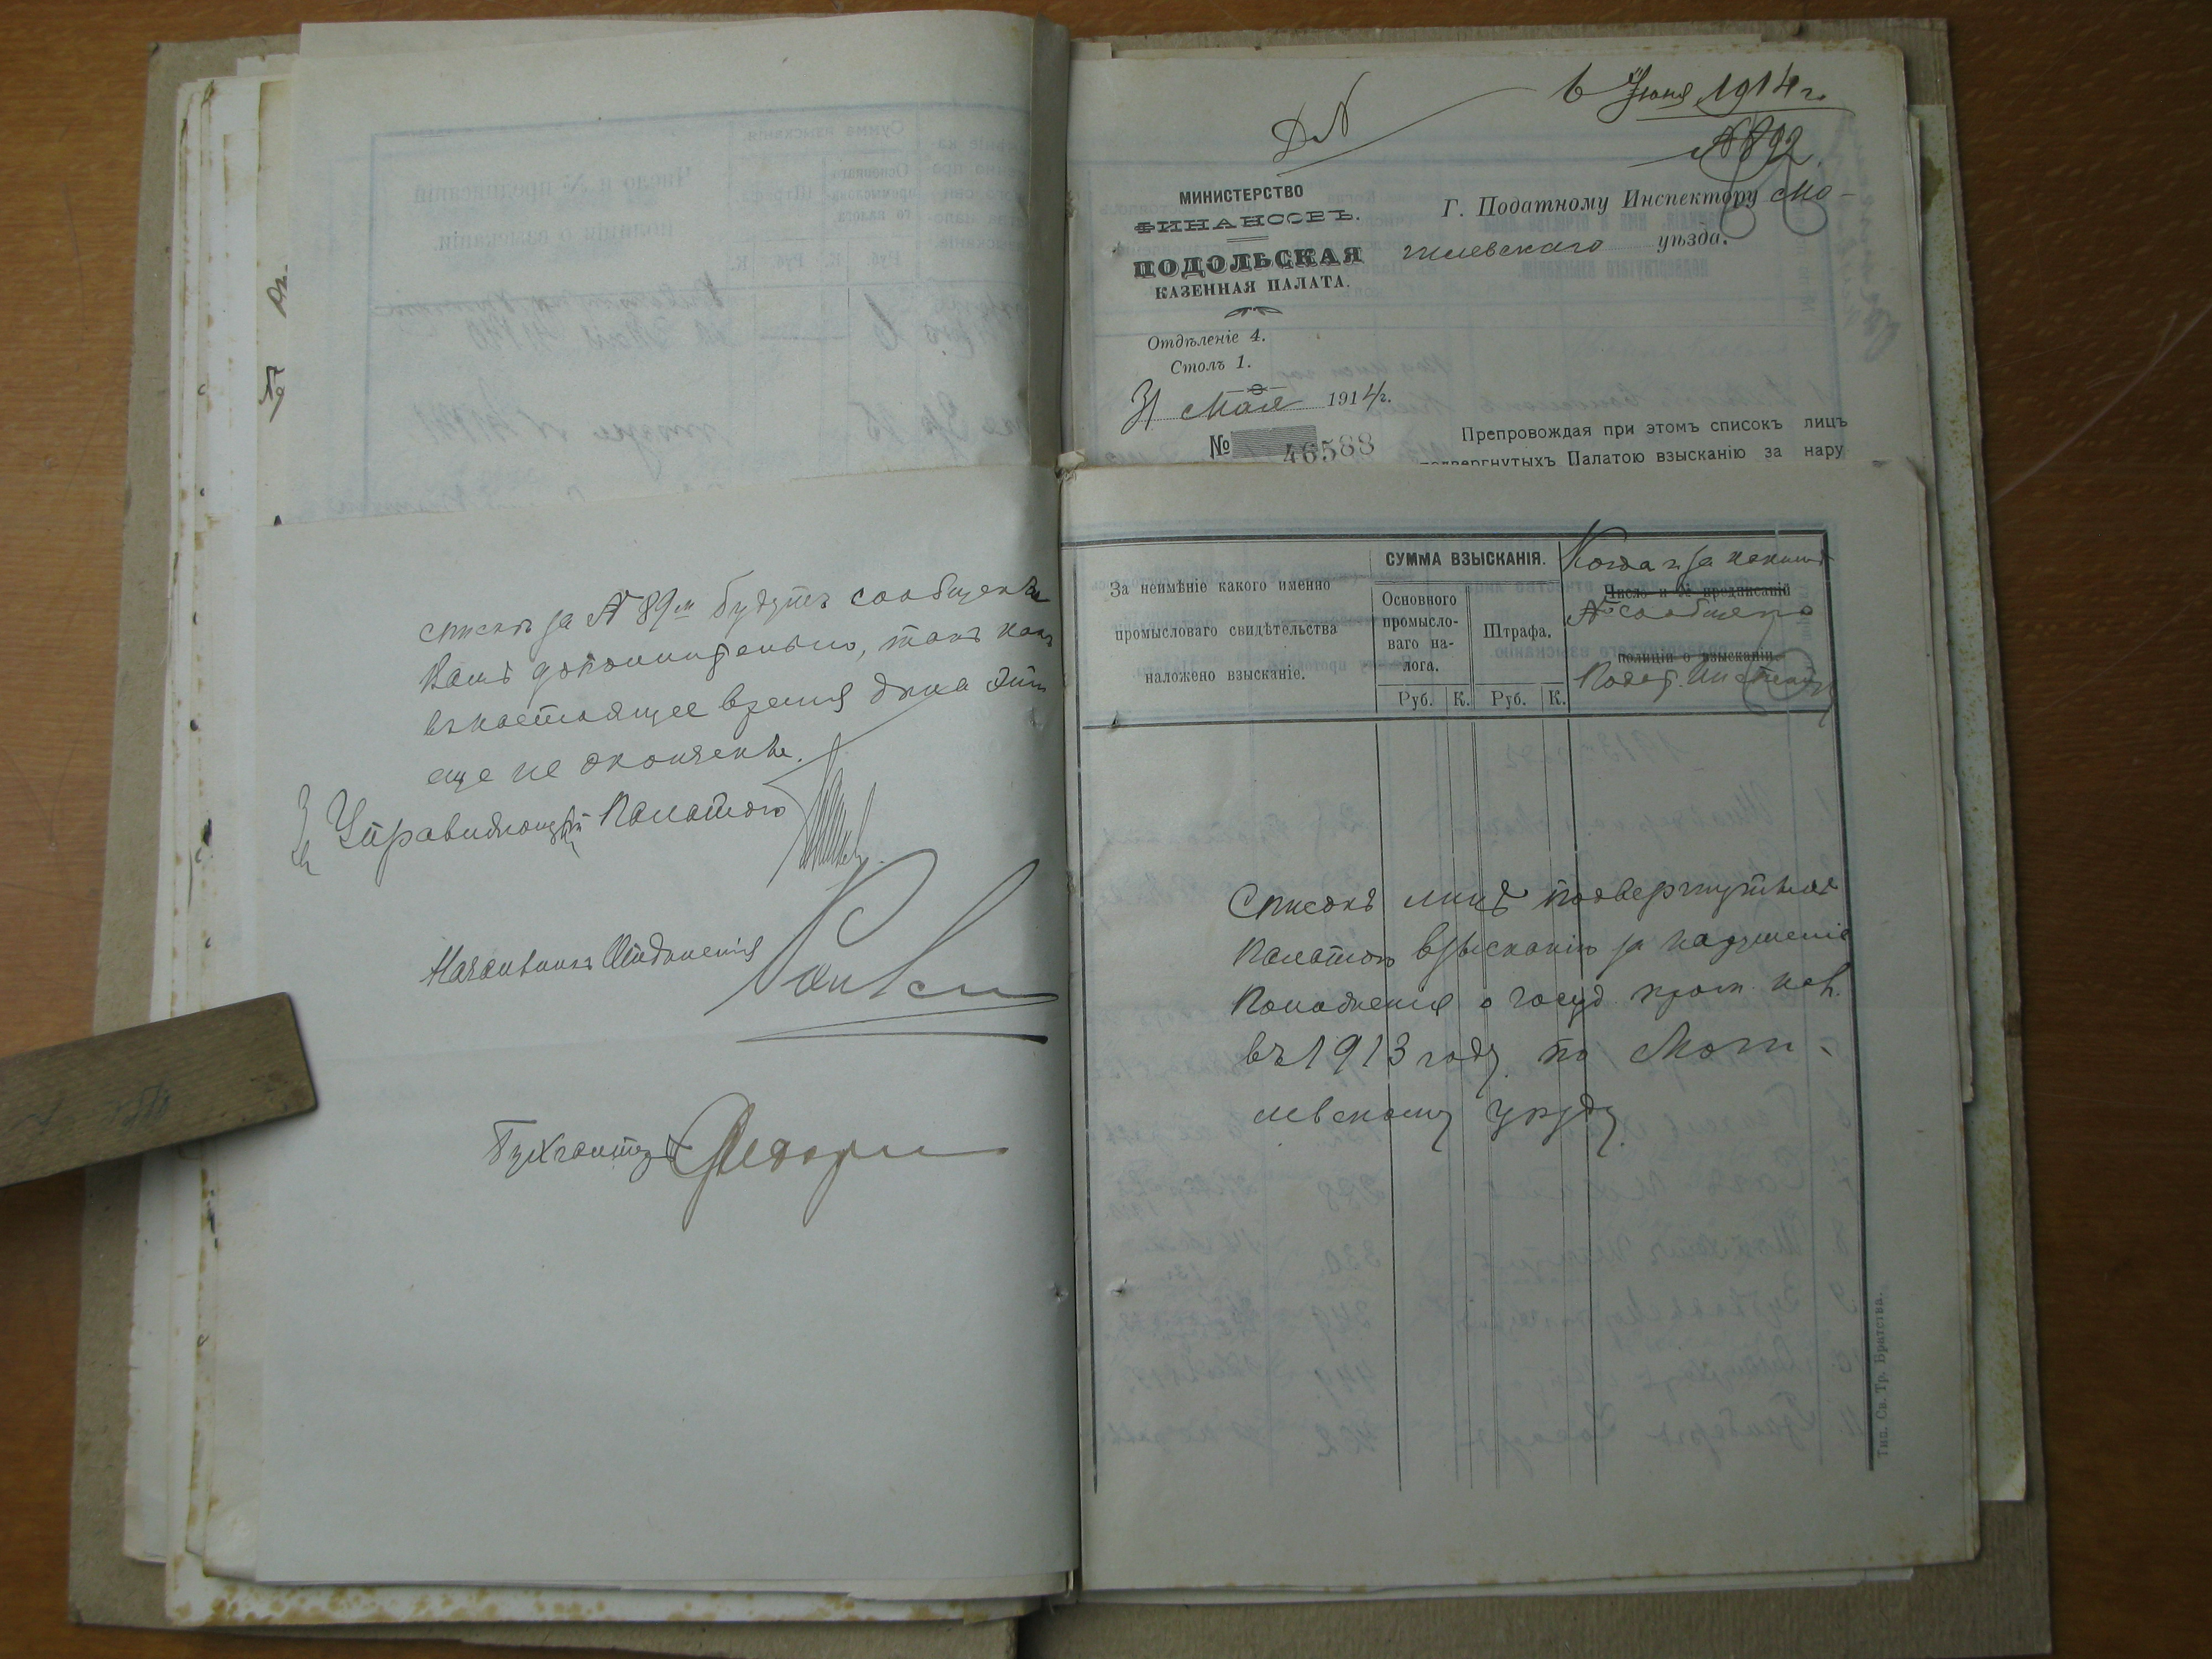 списокъ за № 89м будутъ сообщены
Вамъ дополнительно, такъ какъ
въ настоящее время дела эти
еще не окончены.
За Управляющій Палатою
Начальникъ Отделенія
Бухгалтеръ
6 Іюня 1914 г.
№ 892
МИНИСТЕРСТВО
ФИНАНСОВЪ.
ПОДОЛЬСКАЯ
КАЗЕННАЯ ПАЛАТА.
Отдѣленіе 4.
Столъ 1.
31 Мая 1914 г.
№ 46588
Г. Податному Инспектору Мо-
гилевскаго уѣзда.
Препровождая при этомъ списокъ лицъ
подвергнутыхъ Палатою взысканію за нару
За неимѣніе какого именно
промысловаго свидѣтельства
наложено взысканіе.
СУММА ВЗЫСКАНІЯ.
Основного
промысло-
ваго на-
лога.
Штрафа.
Руб. К. Руб. К.
Когда и за какимъ
Число и № предписаній
№ сообщено
полиціи о взысканіи.
Подат. Инспект
Списокъ лицъ подвергнутыхъ
Палатою взысканію за нарушеніе
Положенія о госуд. пром. нал.
въ 1913 году по Моги-
левскому уѣзду.
Тип. Св. Тр. Братства.